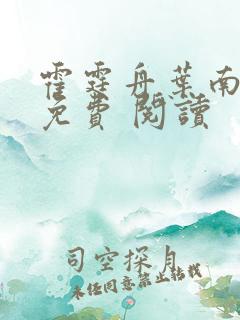 霍霆舟葉南
免費閱讀
司空探月
未經同意禁止轉載